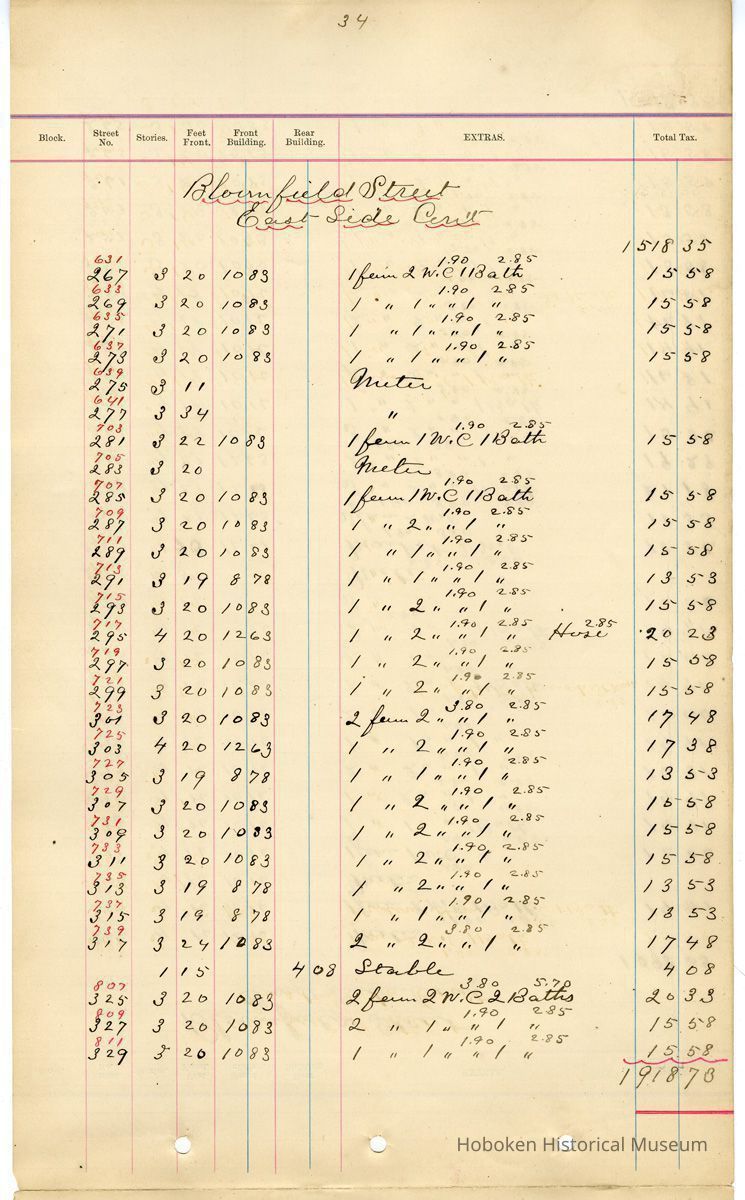 34
Block. Street No. Stories. Feet Front. Front Building. Rear Building. EXTRAS. Total Tax.
Bloomfield Street
East Side Cont
1518 35
631 1.90 2.85
267 3 20 10 83 1 fam 2 W.C 1 Bath 15 58
633 1.90 2.85
269 3 20 10 83 1 " 1 " " 1 " 15 58
635 1.90 2.85
271 3 20 10 83 1 " 1 " " 1 " 15 58
637 1.90 2.85
273 3 20 10 83 1 " 1 " " 1 " 15 58
639
275 3 11 Meter
641
277 3 34 "
703 1.90 2.85
281 3 22 10 83 1 fam 1 W.C 1 Bath 15 58
705
283 3 20 Meter
707 1.90 2.85
285 3 20 10 83 1 fam 1 W.C 1 Bath 15 58
709 1.90 2.85
287 3 20 10 83 1 " 2 " " 1 " 15 58
711 1.90 2.85
289 3 20 10 83 1 " 1 " " 1 " 15 58
713 1.90 2.85
291 3 19 8 78 1 " 1 " " 1 " 13 53
715 1.90 2.85
293 3 20 10 83 1 " 2 " " 1 " 15 58
717 1.90 2.85 2.85
295 4 20 12 63 1 " 2 " " 1 " Hose 20 23
719 1.90 2.85
297 3 20 10 83 1 " 2 " " 1 " 15 58
721 1.90 2.85
299 3 20 10 83 1 " 2 " " 1 " 15 58
723 3.80 2.85
301 3 20 10 83 2 fam 2 " " 1 " 17 48
725 1.90 2.85
303 4 20 12 63 1 " 2 " " 1 " 17 38
727 1.90 2.85
305 3 19 8 78 1 " 1 " " 1 " 13 53
729 1.90 2.85
307 3 20 10 83 1 " 2 " " 1 " 15 58
731 1.90 2.85
309 3 20 10 83 1 " 2 " " 1 " 15 58
733 1.90 2.85
311 3 20 10 83 1 " 2 " " 1 " 15 58
735 1.90 2.85
313 3 19 8 78 1 " 2 " " 1 " 13 53
737 1.90 2.85
315 3 19 8 78 1 " 1 " " 1 " 13 53
739 3.80 2.85
317 3 24 10 83 2 " 2 " " 1 " 17 48
1 15 4 08 Stable 4 08
807 3.80 5.70
325 3 20 10 83 2 fam 2 W.C 2 Baths 20 33
809 1.90 2.85
327 3 20 10 83 2 " 1 " " 1 " 15 58
811 1.90 2.85
329 3 20 10 83 1 " 1 " " 1 " 15 58
1918 73
Hoboken Historical Museum